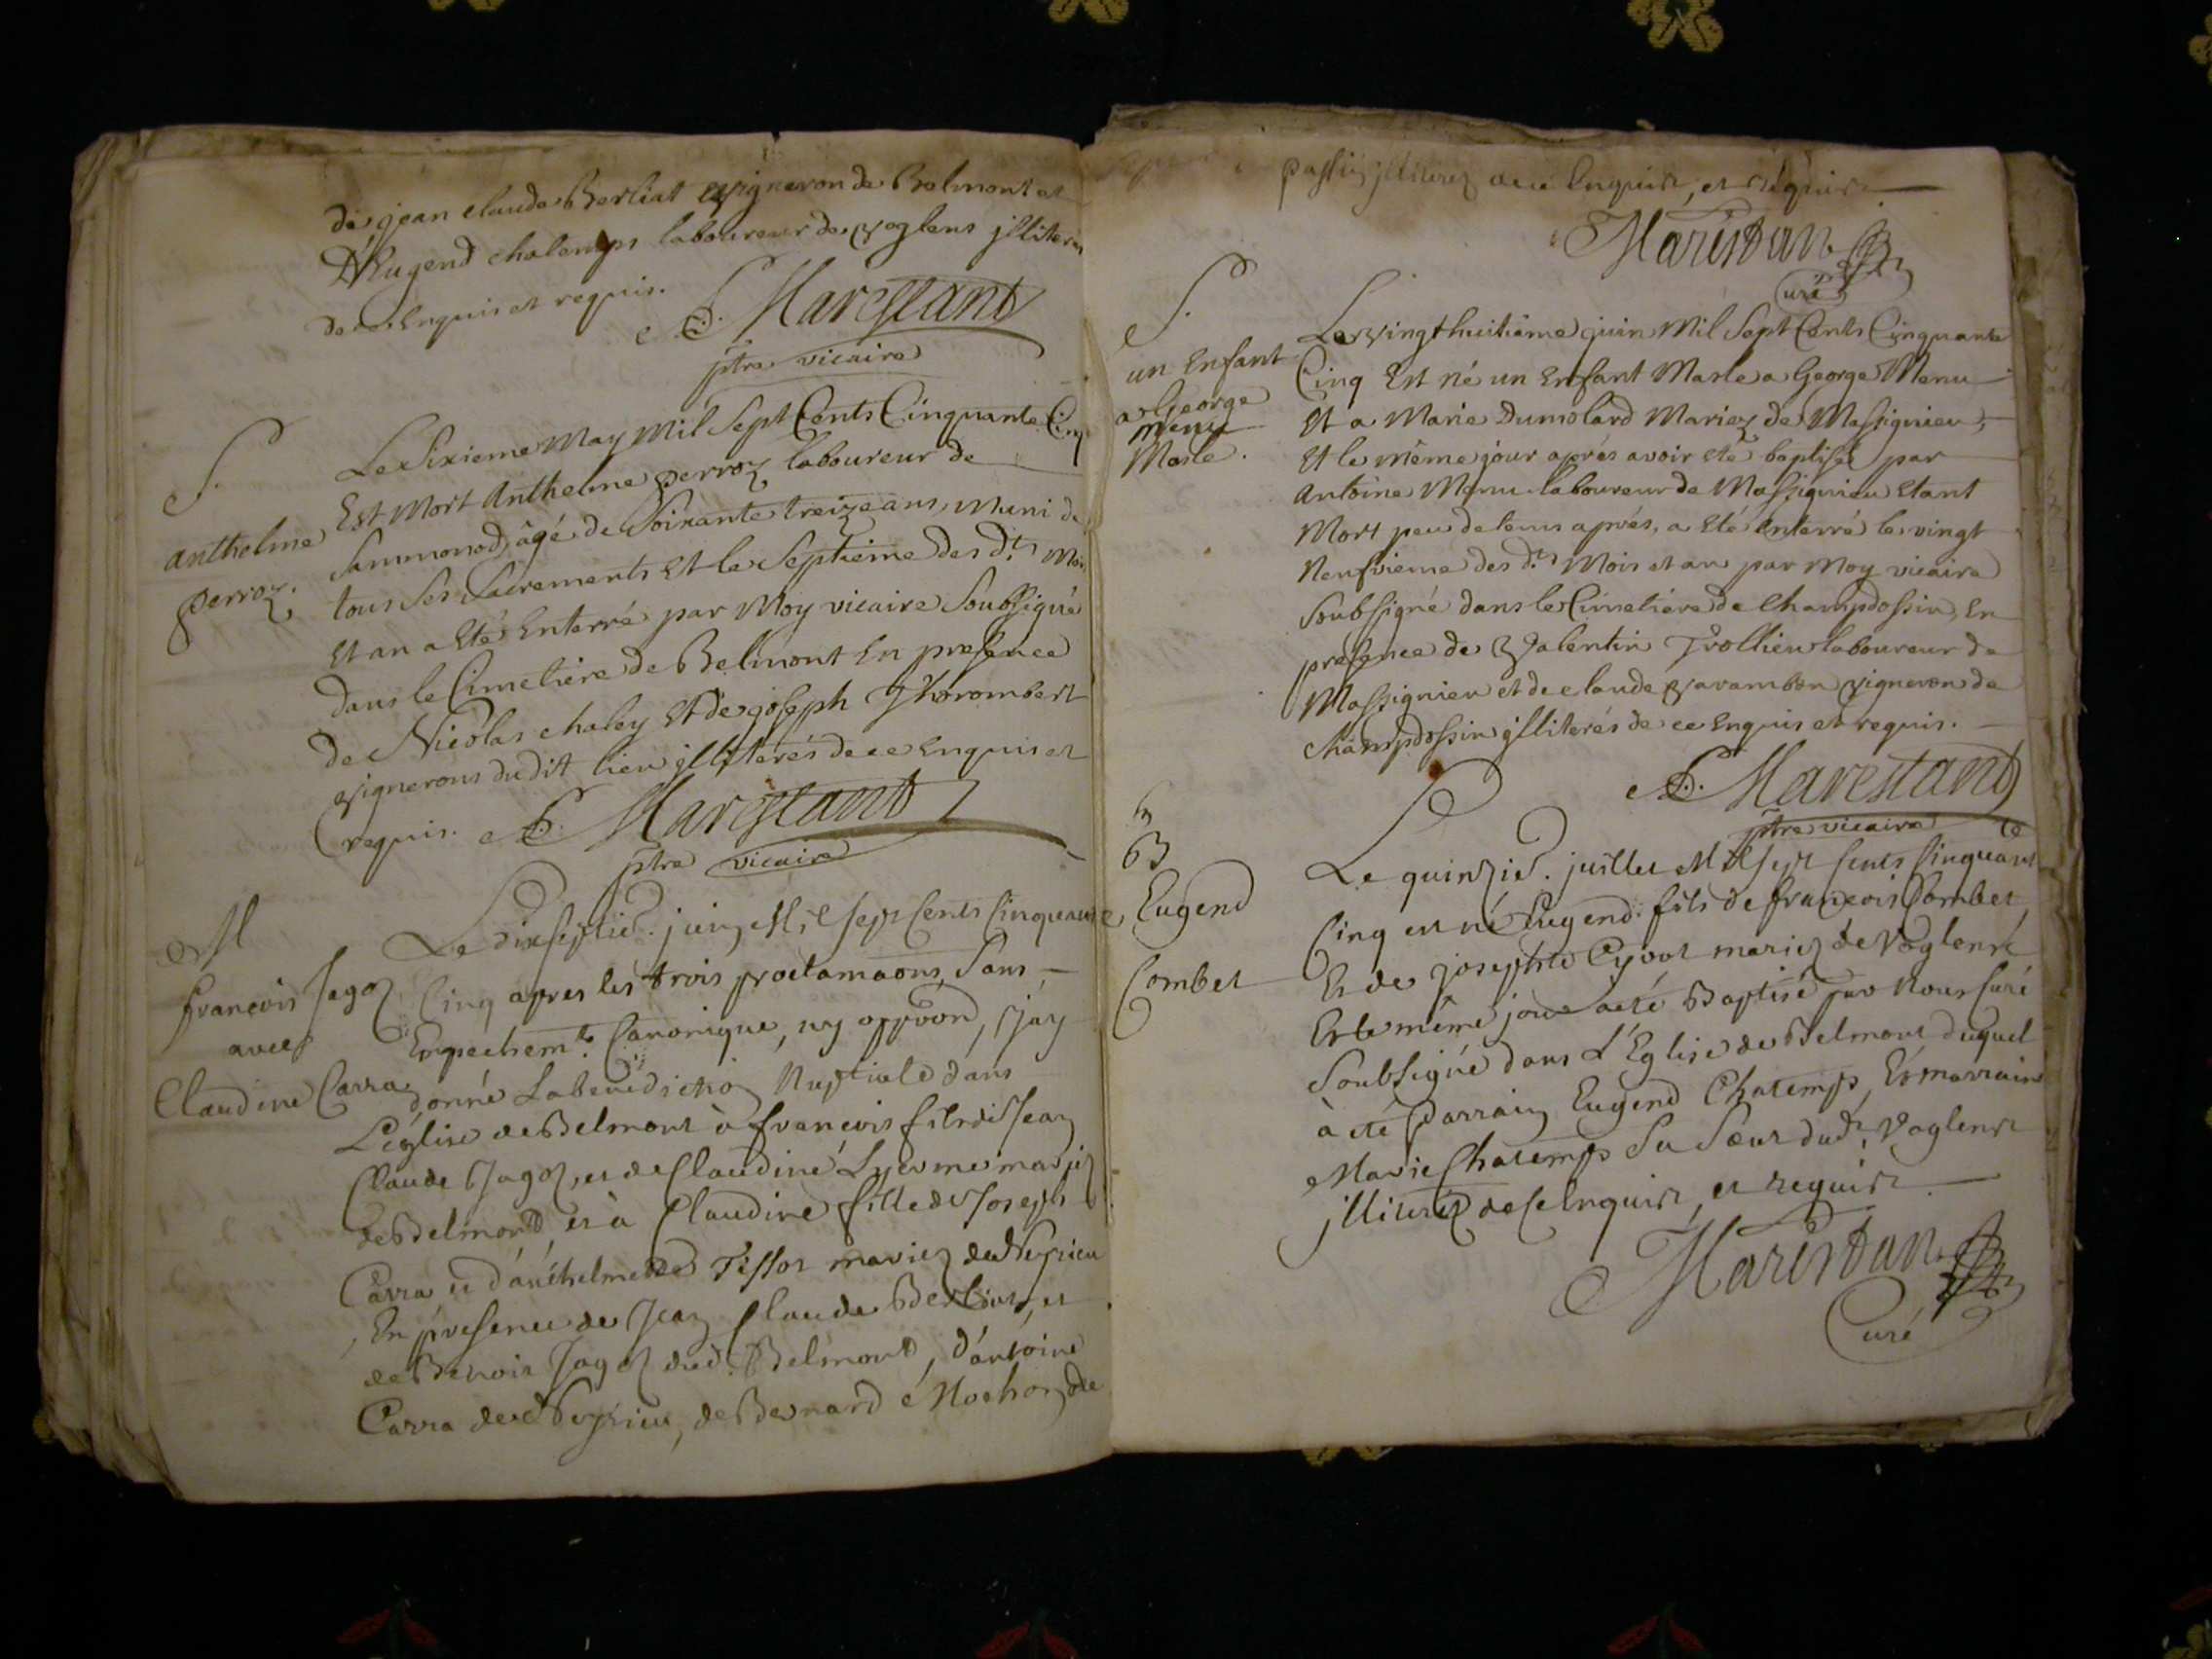 de jean claude Berliat vigneron de Belmont et
D'Eugend chatemps laboureur de voglens jlliterés
de ce Enquis et requis.
Marestant
ptre vicaire
S.
anthelme
perroz.
Le Sixieme May Mil Sept Cents Cinquante Cinq
Est Mort Anthelme perroz laboureur de
Sammonod, âgé de Soixante treize ans, Muni de
tous Ses Sacrements Et le Septieme des d.ts Mois
Et an a Eté Enterré par Moy vicaire Soubsigné
dans le Cimetiere de Belmont En presence
de Nicolas chaley Et de joseph Thorombert
vignerons dudit lieu jlliterés de ce Enquis et
requis. Marestant
ptre vicaire
M
françois Jagoz
avec
Claudine Carra
Le dixseptie. juin Mil Sept Cents Cinquante
Cinq apres les trois proclamaons, Sans
Empechem.t Canonique, ny oppōōn, j'ay
donné La benediction Nuptiale dans
L'eglise de Belmont à françois fils de Jean
Claude Jagoz, et de Claudine Lyerme mariez
de Belmont, et à Claudine fille de Joseph
Carra et d'anthelmette Tissot mariez de Neyrieu
, En presence de Jean Claude Berliat, et
de Benoit Jagoz dud. Belmont, d'antoine
Carra de Neyrieu, de Bernard Mochon de
passin jlliterez de ce Enquis, et requis
Marestan
Curé
S.
un Enfant
a George
Menu
Masle.
Le vingt huitième juin Mil Sept Cents Cinquante
Cinq Est né un Enfant Masle a George Menu
Et a Marie Dumolard Mariez de Massignieu,
Et le même jour aprés avoir eté baptisé par
Antoine Menu laboureur de Massignieu Etant
Mort peu de tems aprés, a Eté Enterré le vingt
Neufvieme des d.ts Mois et an par Moy vicaire
Soubsigné dans le Cimetiére de Champdossin, En
presence de Valentin Trollieu laboureur de
Massignieu et de claude varambon vigneron de
Champdossin jlliterés de ce Enquis et requis.
Marestant
ptre vicaire
B
Eugend
Combet
Le quinzie. juillet Mil Sept Cents Cinquante
Cinq est né Eugend fils de françois Combet
Et de josephte Cyvot mariez de Voglens
Et le même jour a eté Baptisé par Nous Curé
Soubsigné dans L'Eglise de Belmont duquel
à été Parrain Eugend Chatemps, Et marraine
Marie Chatemps Sa Sœur dud. Voglens
jlliterez de ce Enquis, et requis
Marestan
Curé